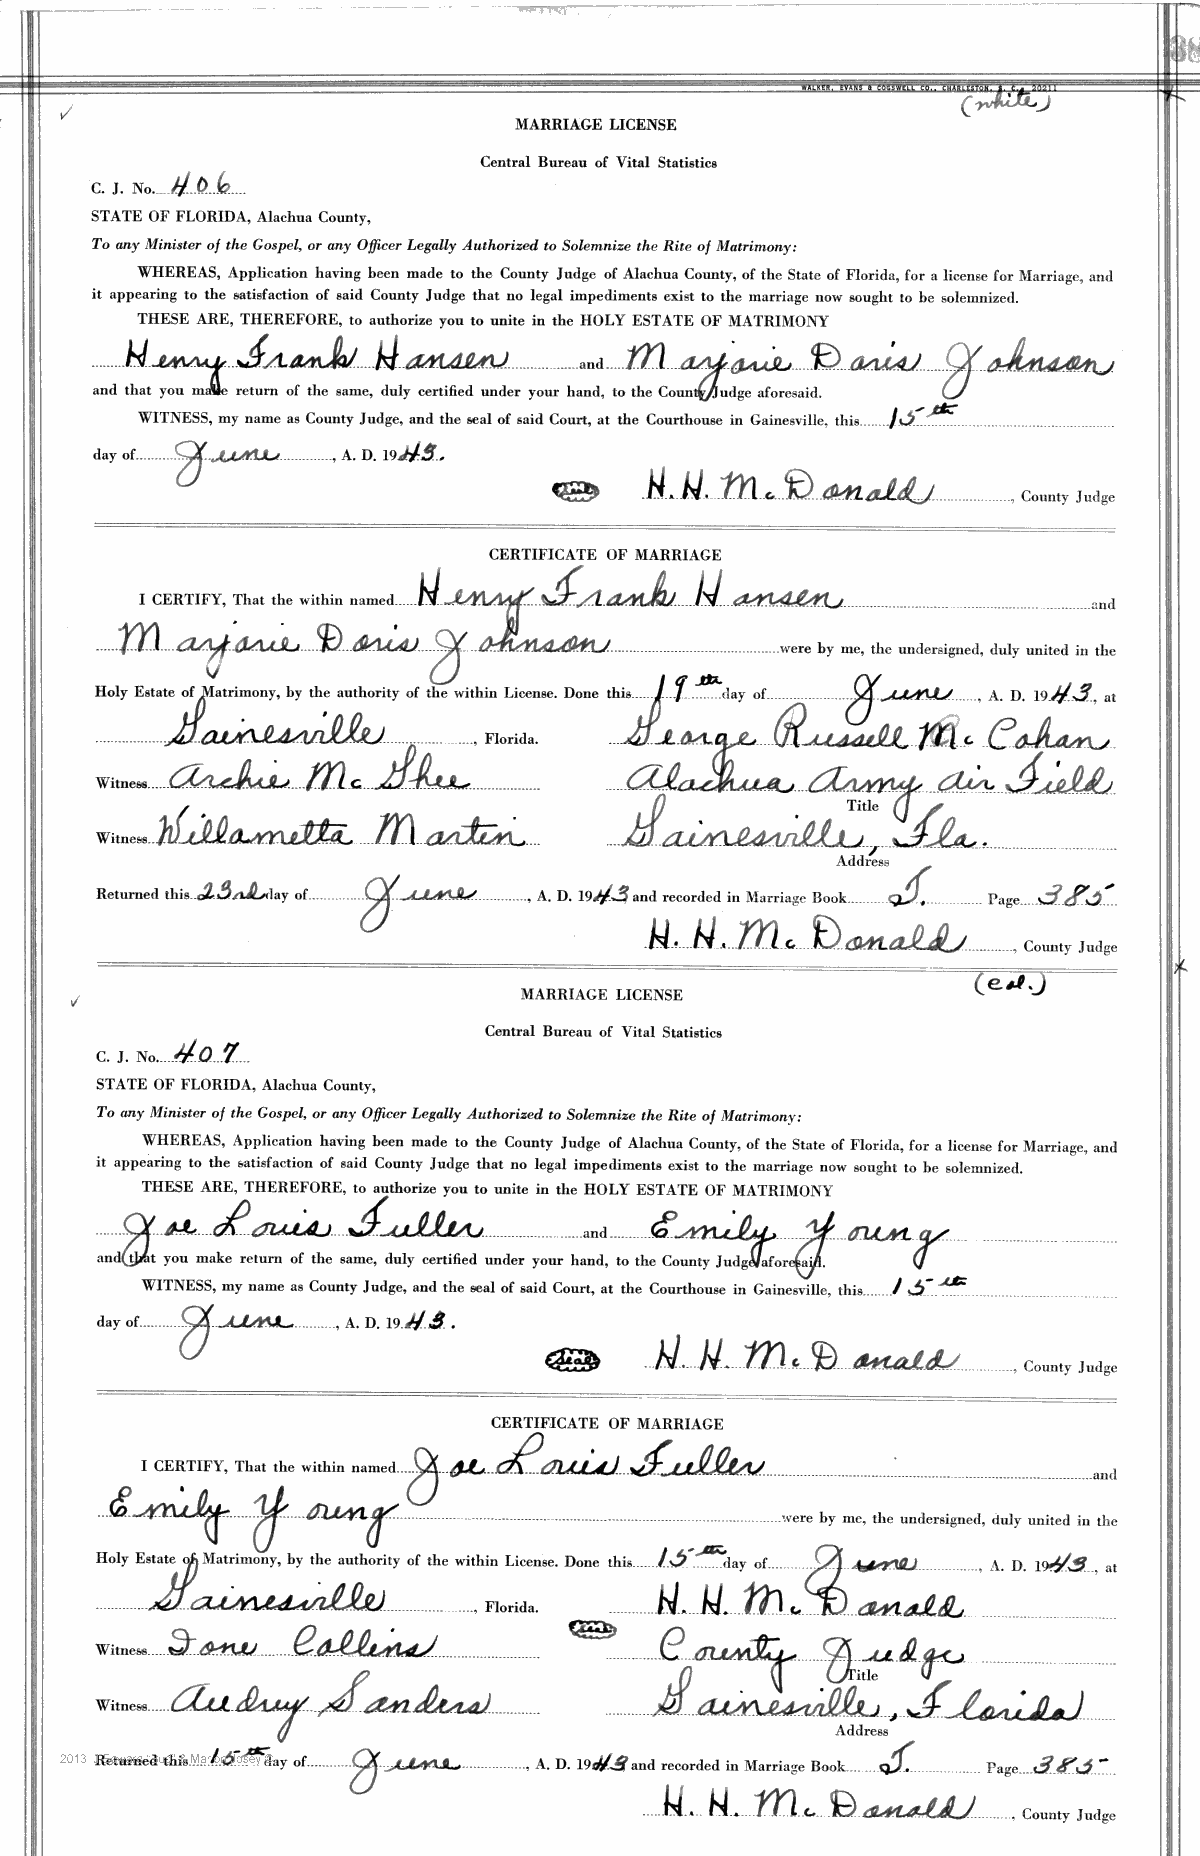 38
WALKER, EVANS & COGSWELL CO., CHARLESTON, S. C. 20211
(white)
MARRIAGE LICENSE
Central Bureau of Vital Statistics
C. J. No. 406
STATE OF FLORIDA, Alachua County,
To any Minister of the Gospel, or any Officer Legally Authorized to Solemnize the Rite of Matrimony:
WHEREAS, Application having been made to the County Judge of Alachua County, of the State of Florida, for a license for Marriage, and
it appearing to the satisfaction of said County Judge that no legal impediments exist to the marriage now sought to be solemnized.
THESE ARE, THEREFORE, to authorize you to unite in the HOLY ESTATE OF MATRIMONY
Henry Frank Hansen and Marjorie Doris Johnson
and that you make return of the same, duly certified under your hand, to the County Judge aforesaid.
WITNESS, my name as County Judge, and the seal of said Court, at the Courthouse in Gainesville, this 15th
day of June, A. D. 1943.
Seal H. H. McDonald, County Judge
CERTIFICATE OF MARRIAGE
I CERTIFY, That the within named Henry Frank Hansen and
Marjorie Doris Johnson were by me, the undersigned, duly united in the
Holy Estate of Matrimony, by the authority of the within License. Done this 19th day of June, A. D. 1943, at
Gainesville, Florida. George Russell McCohan
Witness Archie McGhee Alachua Army Air Field
Title
Witness Willametta Martin Gainesville, Fla.
Address
Returned this 23rd day of June, A. D. 1943 and recorded in Marriage Book T. Page 385
H. H. McDonald, County Judge
(col.)
MARRIAGE LICENSE
Central Bureau of Vital Statistics
C. J. No. 407
STATE OF FLORIDA, Alachua County,
To any Minister of the Gospel, or any Officer Legally Authorized to Solemnize the Rite of Matrimony:
WHEREAS, Application having been made to the County Judge of Alachua County, of the State of Florida, for a license for Marriage, and
it appearing to the satisfaction of said County Judge that no legal impediments exist to the marriage now sought to be solemnized.
THESE ARE, THEREFORE, to authorize you to unite in the HOLY ESTATE OF MATRIMONY
Joe Louis Fuller and Emily Young
and that you make return of the same, duly certified under your hand, to the County Judge aforesaid.
WITNESS, my name as County Judge, and the seal of said Court, at the Courthouse in Gainesville, this 15th
day of June, A. D. 1943.
Seal H. H. McDonald, County Judge
CERTIFICATE OF MARRIAGE
I CERTIFY, That the within named Joe Louis Fuller and
Emily Young were by me, the undersigned, duly united in the
Holy Estate of Matrimony, by the authority of the within License. Done this 15th day of June, A. D. 1943, at
Gainesville, Florida. H. H. McDonald
Seal
Witness Ione Collins County Judge
Title
Witness Audrey Sanders Gainesville, Florida
Address
2013
Returned this 15th day of June, A. D. 1943 and recorded in Marriage Book T. Page 385
H. H. McDonald, County Judge